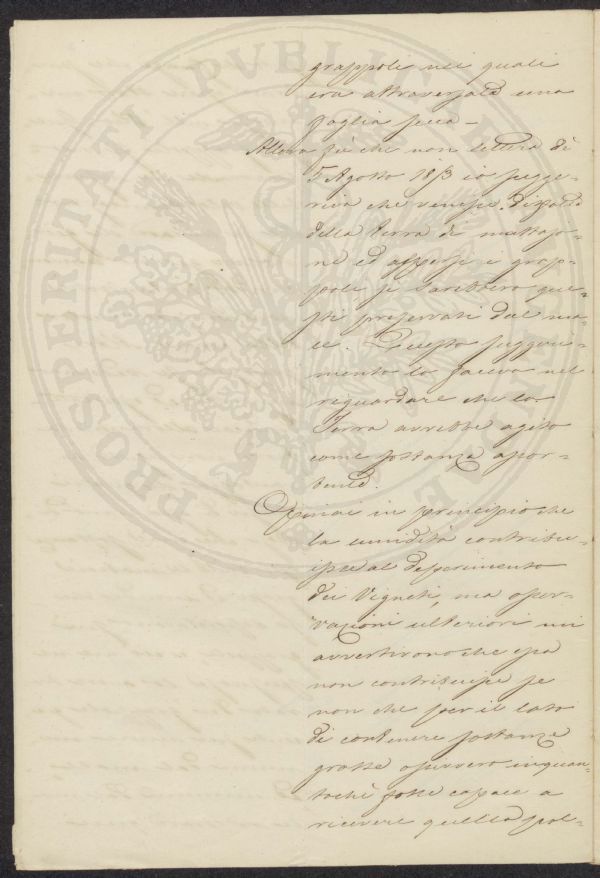 PROSPERITATI PVBLICAE AVGENDAE
grappoli nei quali
era attraversata una
foglia secca –
Allora fù che con lettera dè
5 Agosto 1853 io sugge-
riva che venisse
della terra di mattajo-
ne ed aspersi i grap-
poli si sarebbero que-
sti preservati dal ma-
le. Questo suggeri-
mento lo faceva nel
riguardare che la
Terra avrebbe agito
come sostanza assor-
bente.
Opinai in principio che
la umidità contribu-
isse al deperimento
dei Vigneti, ma osser-
vazioni ulteriori mi
avvertirono che essa
non contribuisse se
non che per il lato
di contenere sostanze
grasse ossivvero inquan-
tochè fosse capace a
ricevere quella pol-